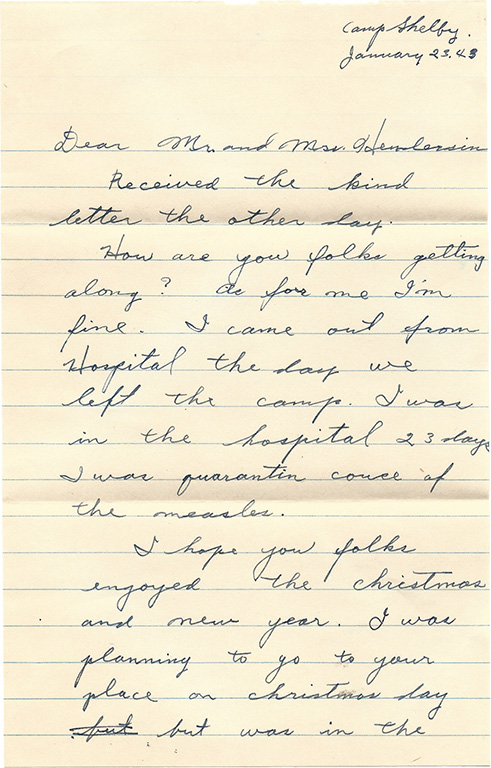 Camp Shelby.
January 23.43
Dear Mr. and Mrs. Henlersin
Received the kind
letter the other day.
How are you folks getting
along? As for me I'm
fine. I came out from
Hospital the day we
left the camp. I was
in the hospital 23 days
I was quarantin couce of
the measles.
I hope you folks
enjoyed the christmas
and new year. I was
planning to go to your
place on christmas day
but but was in the